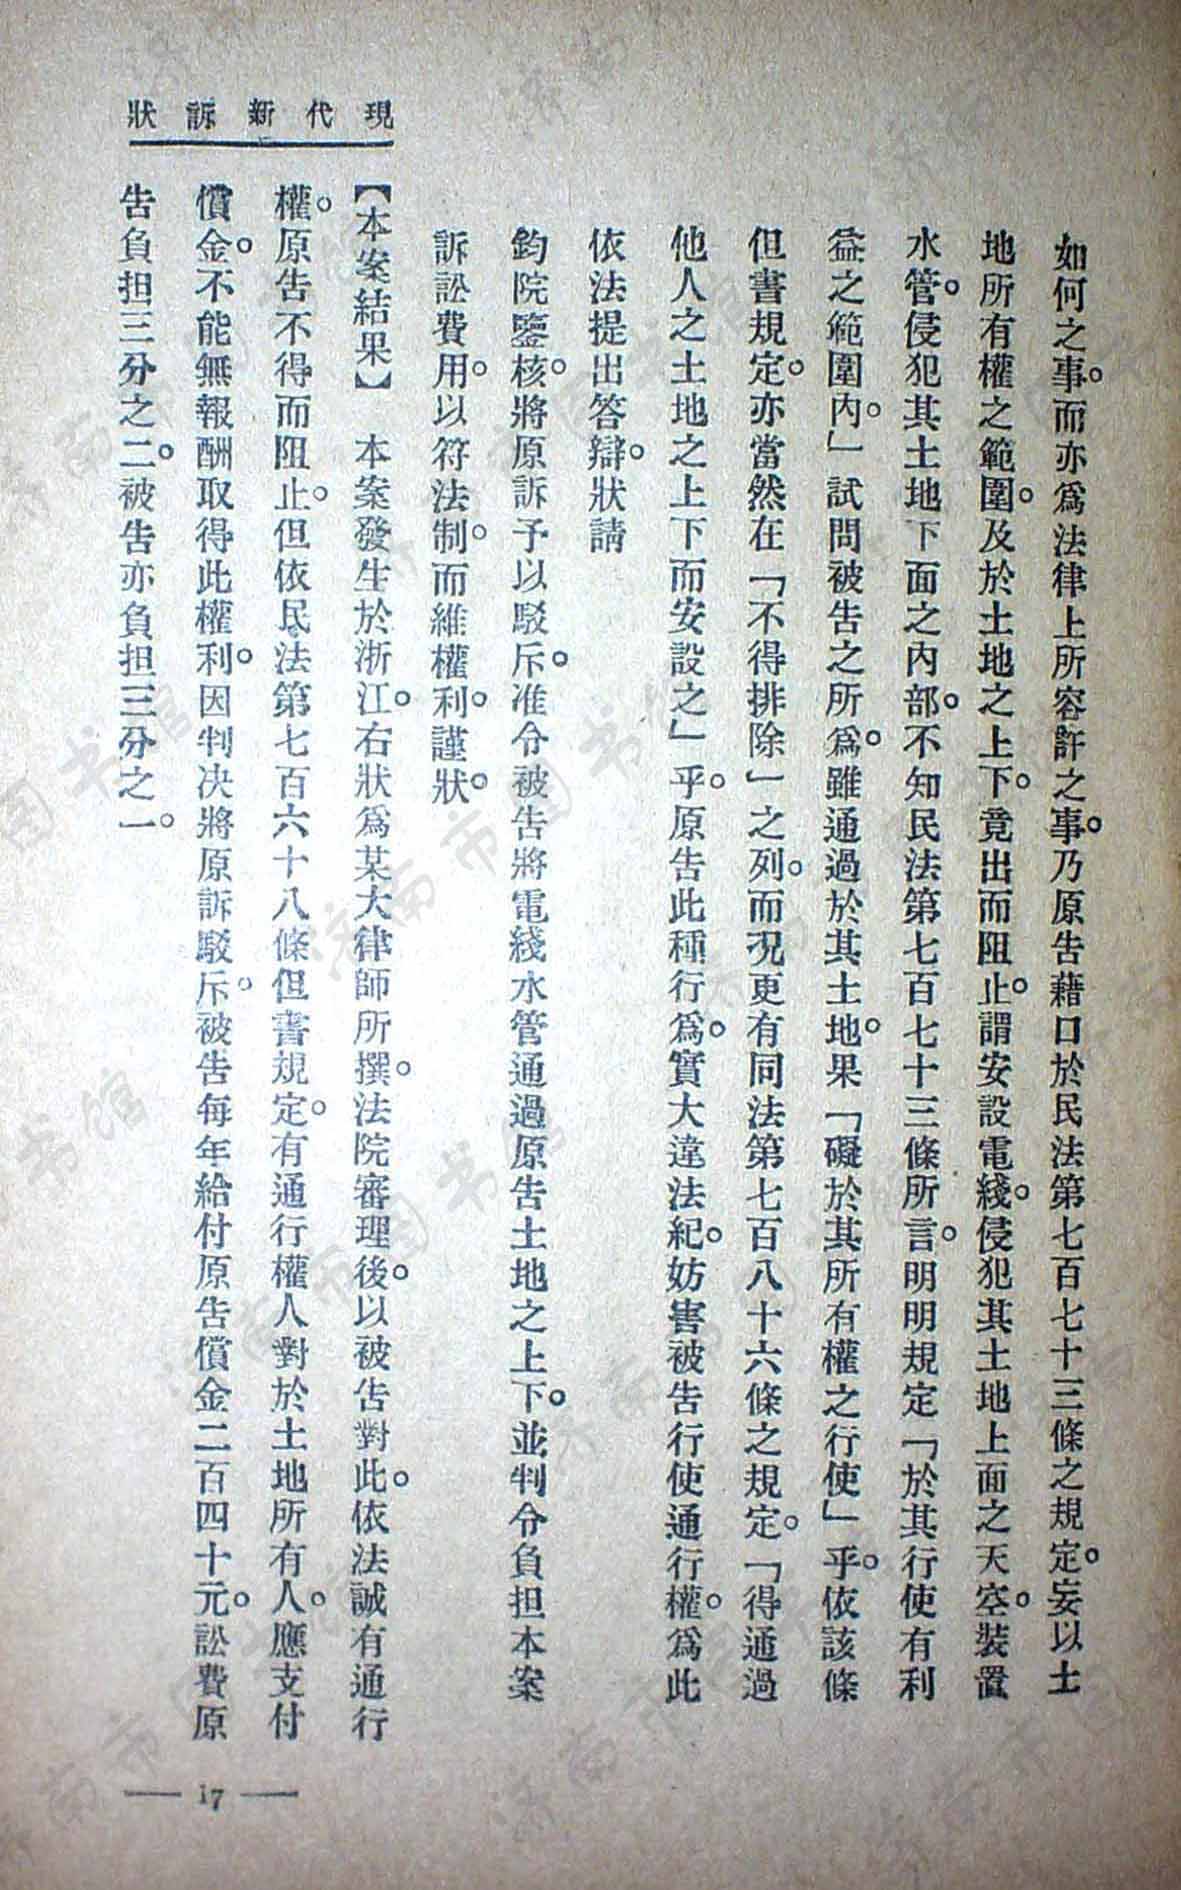 現代新訴狀
如何之事。而亦爲法律上所容許之事。乃原告藉口於民法第七百七十三條之規定。妄以土
地所有權之範圍。及於土地之上下。竟出而阻止。謂安設電綫。侵犯其土地上面之天空。裝置
水管。侵犯其土地下面之內部。不知民法第七百七十三條所言。明明規定「於其行使有利
益之範圍內。」試問被告之所爲。雖通過於其土地。果「礙於其所有權之行使」乎。依該條
但書規定。亦當然在「不得排除」之列。而況更有同法第七百八十六條之規定。「得通過
他人之土地之上下而安設之」乎。原告此種行爲。實大違法紀。妨害被告行使通行權。爲此
依法提出答辯。狀請
鈞院鑒核。將原訴予以駁斥。准令被告將電綫水管通過原告土地之上下。並判令負担本案
訴訟費用。以符法制。而維權利。謹狀。
【本案結果】 本案發生於浙江。右狀爲某大律師所撰。法院審理後。以被告對此。依法誠有通行
權。原告不得而阻止。但依民法第七百六十八條但書規定。有通行權人對於土地所有人。應支付
償金。不能無報酬取得此權利。因判决將原訴駁斥。被告每年給付原告償金二百四十元。訟費原
告負担三分之二。被告亦負担三分之一。
— 17 —
济南市图书馆